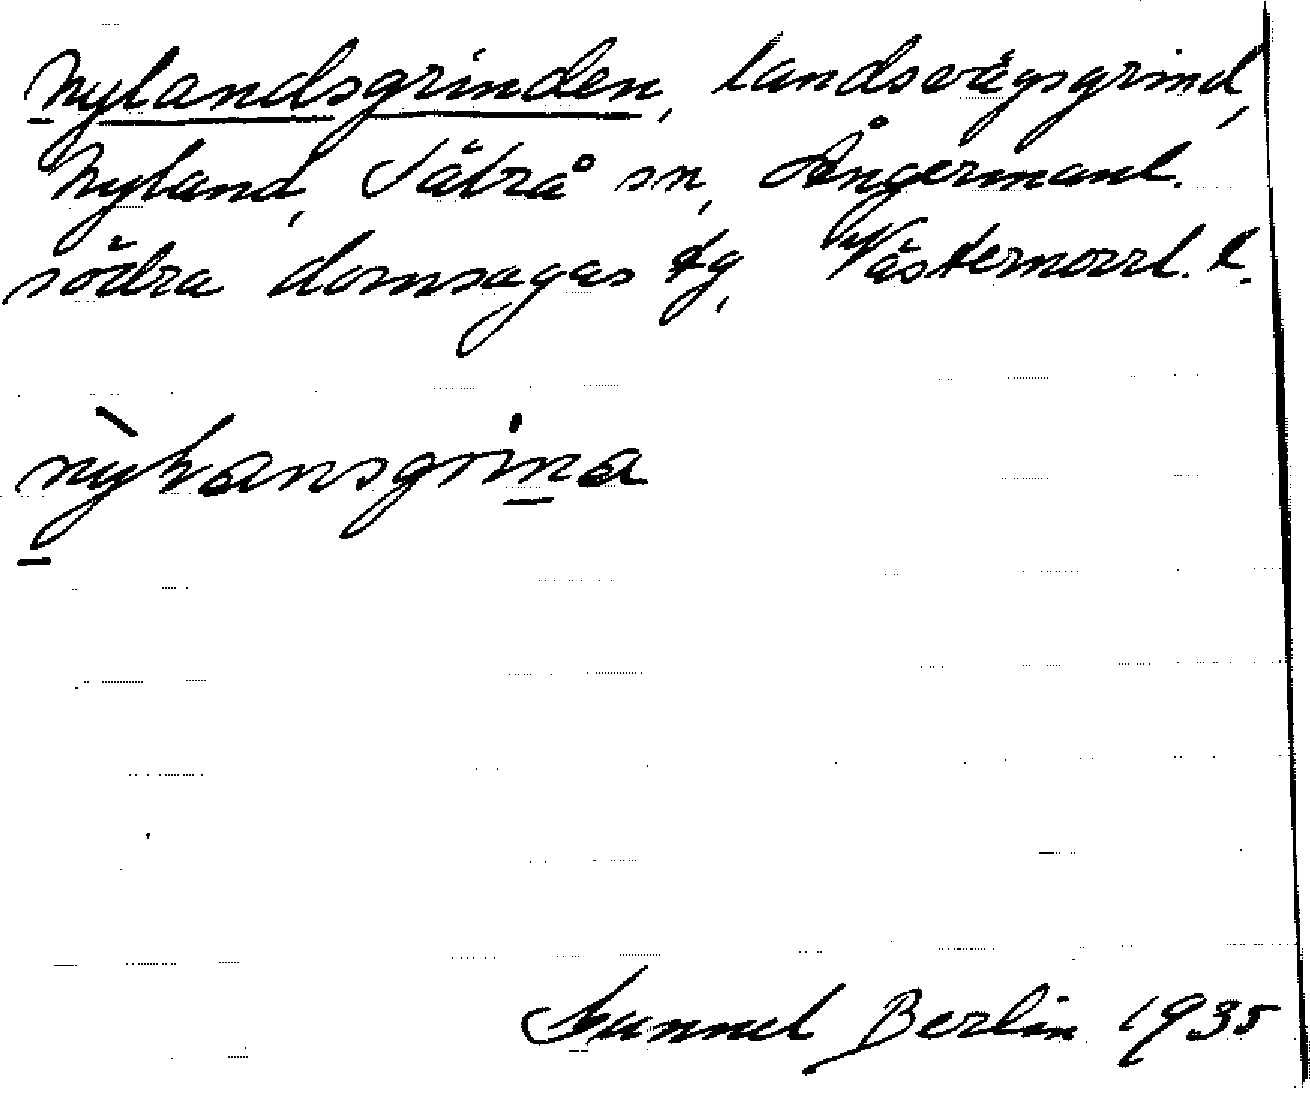 Nylandsgrinden, landsvägsgrind,
Nyland, Säbrå sn, Ångermanl.
södra domsagas tg, Västernorrl. l.
nỳlansgrina
Gunnel Berlin 1935